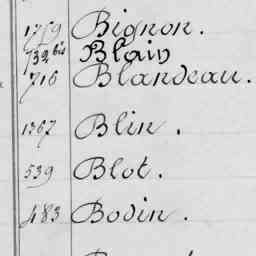 1759 Bignon.
732 bis Blain
716 Blandeau.
1367 Blin.
539 Blot.
483 Bodin.